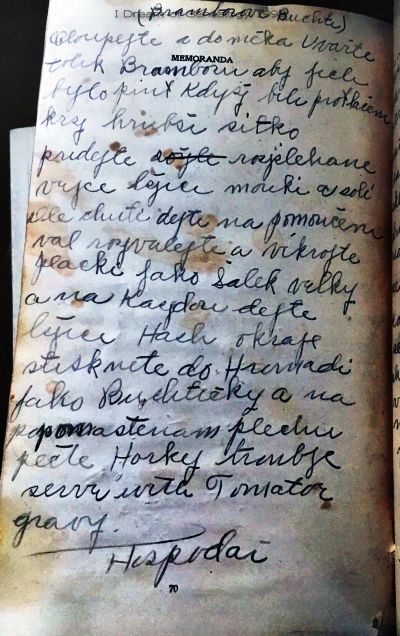 (Bramborové Buchte)
Oloupejte a do měka Uvařte
MEMORANDA
tolik Brambour aby jich
bylo pint Když bili protlačeni
krz hrubší sitko
pridejte rozšlehane
vejce lžice mouki a soli
dle chuti dejte na pomoučeni
val rozvalejte a vikrojte
placki jako šalek velky
a na Kazdou dejte
lžice Hash okraje
stisknete do Hromadi
jako Buchtičky a na
pomasteniam plechu
pečte Horky troubje
serve with Tomatoe
gravy.
Hospodař
70